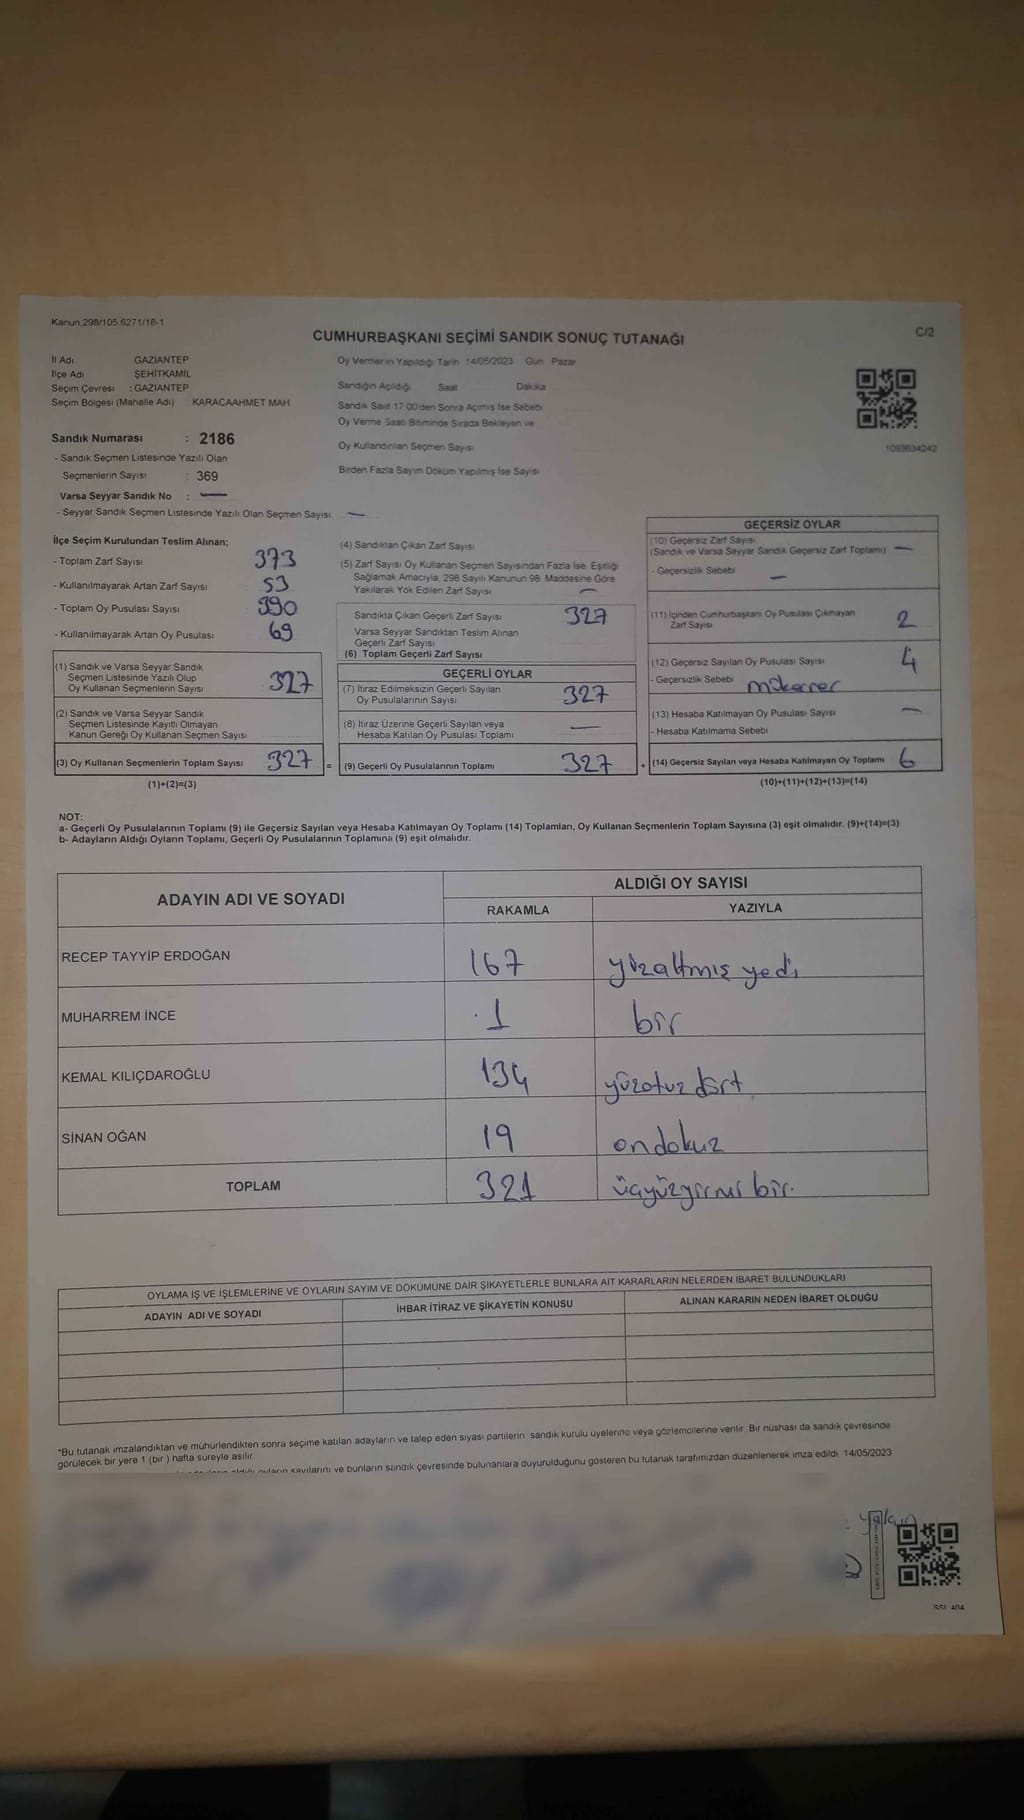 Kanun:298/105 6271/18-1
C/2
CUMHURBAŞKANI SEÇİMİ SANDIK SONUÇ TUTANAĞI
İl Adı GAZİANTEP
İlçe Adı ŞEHİTKAMİL
Seçim Çevresi : GAZİANTEP
Seçim Bölgesi (Mahalle Adı) KARACAAHMET MAH
Sandık Numarası : 2186
- Sandık Seçmen Listesinde Yazılı Olan
Seçmenlerin Sayısı : 369
Varsa Seyyar Sandık No : —
- Seyyar Sandık Seçmen Listesinde Yazılı Olan Seçmen Sayısı —
Oy Vermenin Yapıldığı Tarih 14/05/2023 Gün Pazar
Sandığın Açıldığı Saat Dakika
Sandık Saat 17 00'den Sonra Açılmış İse Sebebi
Oy Verme Saati Bitiminde Sırada Bekleyen ve
Oy Kullandırılan Seçmen Sayısı
Birden Fazla Sayım Döküm Yapılmış İse Sayısı
1093634242
İlçe Seçim Kurulundan Teslim Alınan;
- Toplam Zarf Sayısı 373
- Kullanılmayarak Artan Zarf Sayısı 53
- Toplam Oy Pusulası Sayısı 390
- Kullanılmayarak Artan Oy Pusulası 69
(1) Sandık ve Varsa Seyyar Sandık
Seçmen Listesinde Yazılı Olup
Oy Kullanan Seçmenlerin Sayısı 327
(2) Sandık ve Varsa Seyyar Sandık
Seçmen Listesinde Kayıtlı Olmayan
Kanun Gereği Oy Kullanan Seçmen Sayısı
(3) Oy Kullanan Seçmenlerin Toplam Sayısı 327 =
(1)+(2)=(3)
(4) Sandıktan Çıkan Zarf Sayısı
(5) Zarf Sayısı Oy Kullanan Seçmen Sayısından Fazla İse, Eşitliği
Sağlamak Amacıyla, 298 Sayılı Kanunun 98. Maddesine Göre
Yakılarak Yok Edilen Zarf Sayısı —
Sandıkta Çıkan Geçerli Zarf Sayısı 327
Varsa Seyyar Sandıktan Teslim Alınan
Geçerli Zarf Sayısı
(6) Toplam Geçerli Zarf Sayısı
GEÇERLİ OYLAR
(7) İtiraz Edilmeksizin Geçerli Sayılan
Oy Pusulalarının Sayısı 327
(8) İtiraz Üzerine Geçerli Sayılan veya
Hesaba Katılan Oy Pusulası Toplamı —
(9) Geçerli Oy Pusulalarının Toplamı 327 +
GEÇERSİZ OYLAR
(10) Geçersiz Zarf Sayısı
(Sandık ve Varsa Seyyar Sandık Geçersiz Zarf Toplamı) —
- Geçersizlik Sebebi —
(11) İçinden Cumhurbaşkanı Oy Pusulası Çıkmayan
Zarf Sayısı 2
(12) Geçersiz Sayılan Oy Pusulası Sayısı 4
- Geçersizlik Sebebi mükerrer
(13) Hesaba Katılmayan Oy Pusulası Sayısı —
- Hesaba Katılmama Sebebi
(14) Geçersiz Sayılan veya Hesaba Katılmayan Oy Toplamı 6
(10)+(11)+(12)+(13)=(14)
NOT:
a- Geçerli Oy Pusulalarının Toplamı (9) ile Geçersiz Sayılan veya Hesaba Katılmayan Oy Toplamı (14) Toplamları, Oy Kullanan Seçmenlerin Toplam Sayısına (3) eşit olmalıdır. (9)+(14)=(3)
b- Adayların Aldığı Oyların Toplamı, Geçerli Oy Pusulalarının Toplamına (9) eşit olmalıdır.
ADAYIN ADI VE SOYADI ALDIĞI OY SAYISI
RAKAMLA YAZIYLA
RECEP TAYYİP ERDOĞAN 167 yüzaltmış yedi
MUHARREM İNCE 1 bir
KEMAL KILIÇDAROĞLU 134 yüzotuz dört
SİNAN OĞAN 19 ondokuz
TOPLAM 321 üçyüzyirmi bir.
OYLAMA İŞ VE İŞLEMLERİNE VE OYLARIN SAYIM VE DÖKÜMÜNE DAİR ŞİKAYETLERLE BUNLARA AİT KARARLARIN NELERDEN İBARET BULUNDUKLARI
ADAYIN ADI VE SOYADI İHBAR İTİRAZ VE ŞİKAYETİN KONUSU ALINAN KARARIN NEDEN İBARET OLDUĞU
*Bu tutanak imzalandıktan ve mühürlendikten sonra seçime katılan adayların ve talep eden siyasi partilerin sandık kurulu üyelerine veya gözlemcilerine verilir. Bir nüshası da sandık çevresinde
görülecek bir yere 1 (bir ) hafta süreyle asılır
sayılarını ve bunların sandık çevresinde bulunanlara duyurulduğunu gösteren bu tutanak tarafımızdan düzenlenerek imza edildi. 14/05/2023